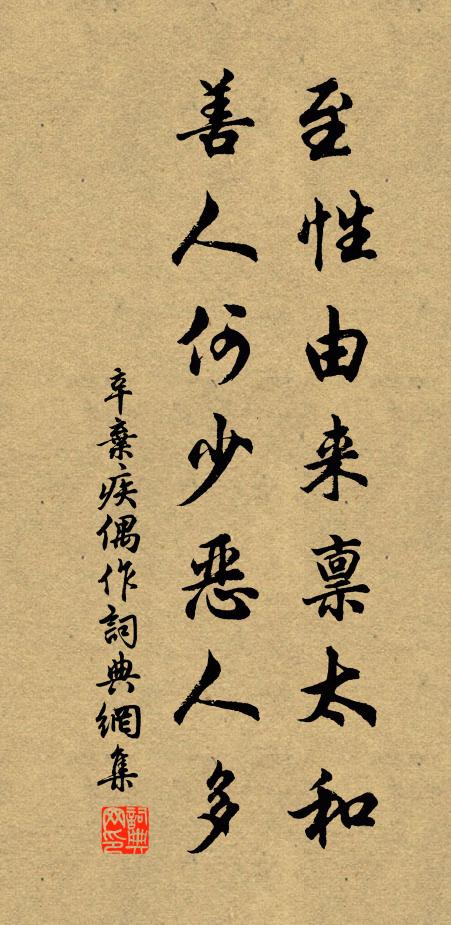 至性由来禀太和
善人何少恶人多
辛棄疾偶作詞典網集
詞典网印